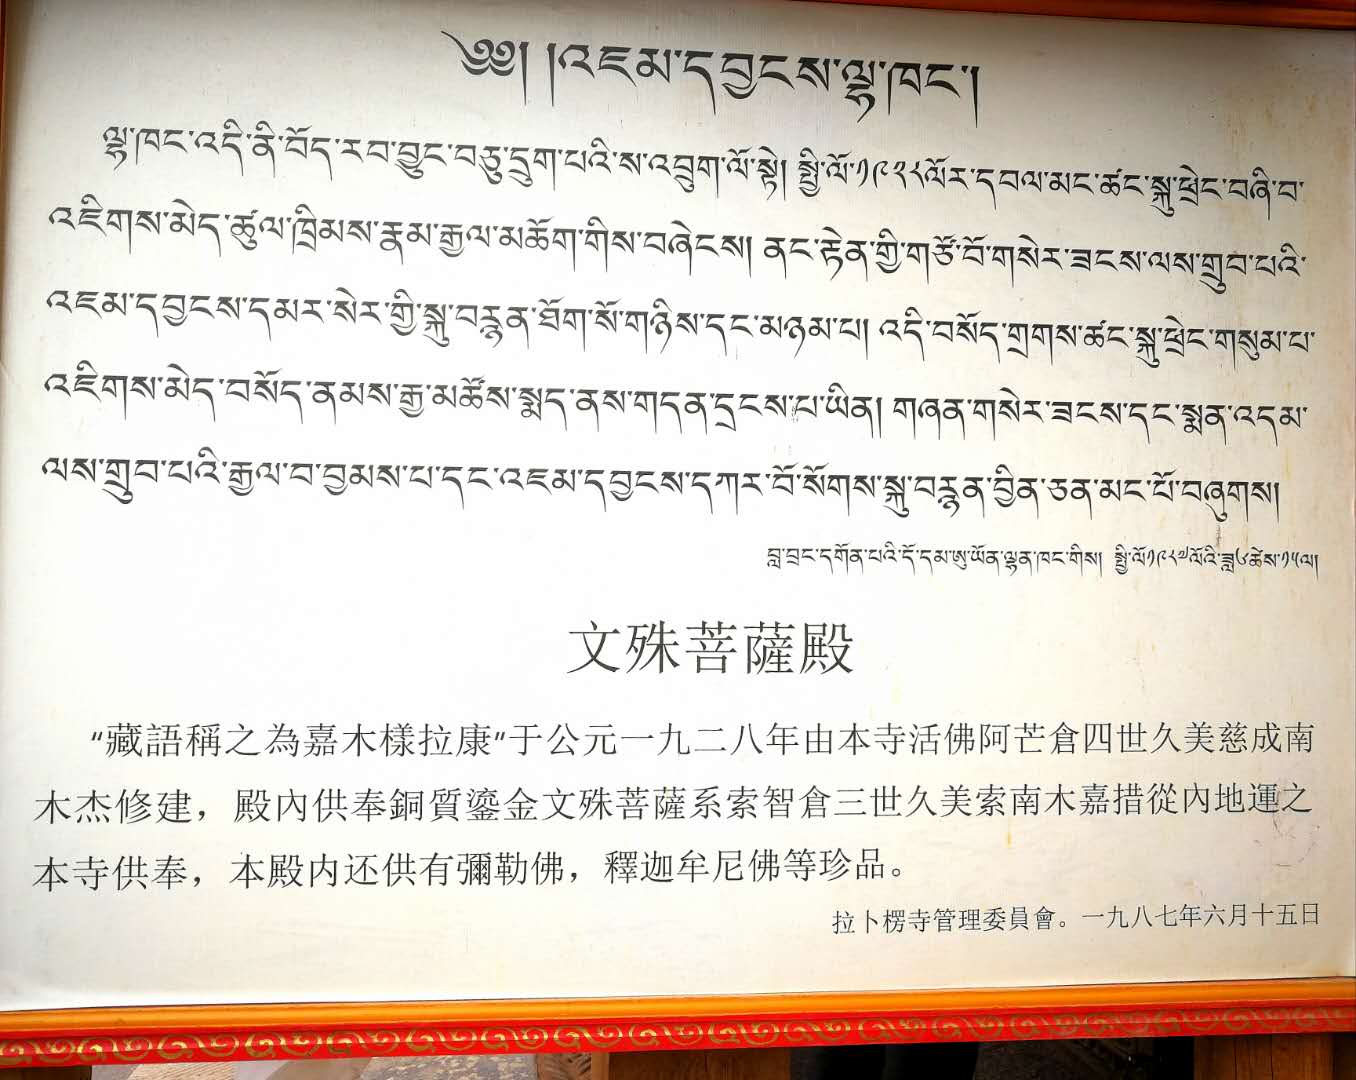 ༄༅། །འཇམ་དབྱངས་ལྷ་ཁང་།
ལྷ་ཁང་འདི་ནི་བོད་རབ་བྱུང་བཅུ་དྲུག་པའི་ས་འབྲུག་ལོ་སྟེ། སྤྱི་ལོ་༡༩༢༨ལོར་དབལ་མང་ཚང་སྐུ་ཕྲེང་བཞི་བ་
འཇིགས་མེད་ཚུལ་ཁྲིམས་རྣམ་རྒྱལ་མཆོག་གིས་བཞེངས། ནང་རྟེན་གྱི་གཙོ་བོ་གསེར་ཟངས་ལས་གྲུབ་པའི་
འཇམ་དབྱངས་དམར་སེར་གྱི་སྐུ་བརྙན་ཐོག་སོ་གཉིས་དང་མཉམ་པ། འདི་བསོད་གྲགས་ཚང་སྐུ་ཕྲེང་གསུམ་པ་
འཇིགས་མེད་བསོད་ནམས་རྒྱ་མཚོས་སྨད་ནས་གདན་དྲངས་པ་ཡིན། གཞན་གསེར་ཟངས་དང་སྨན་འདམ་
ལས་གྲུབ་པའི་རྒྱལ་བ་བྱམས་པ་དང་འཇམ་དབྱངས་དཀར་པོ་སོགས་སྐུ་བརྙན་བྱིན་ཅན་མང་པོ་བཞུགས།
བླ་བྲང་དགོན་པའི་དོ་དམ་ཨུ་ཡོན་ལྷན་ཁང་གིས། སྤྱི་ལོ༡༩༨༧ལོའི་ཟླ༦ཚེས་༡༥ལ།
文殊菩薩殿
“藏語稱之為嘉木樣拉康”于公元一九二八年由本寺活佛阿芒倉四世久美慈成南
木杰修建，殿內供奉銅質鎏金文殊菩薩系索智倉三世久美索南木嘉措從內地運之
本寺供奉，本殿内还供有彌勒佛，釋迦牟尼佛等珍品。
拉卜楞寺管理委員會。一九八七年六月十五日